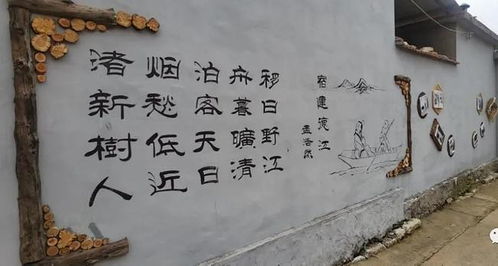 宿建渡江
孟浩然
移舟泊烟渚
日暮客愁新
野曠天低樹
江清日近人